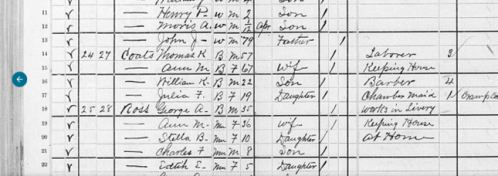 11 ✓ — Henry P. W M 2 Son /
12 ✓ — Morris A. W M 2/12 Apr Son /
13 ✓ — John J— W M 79 Father /
14 ✓ 24 27 Coats Thomas K B M 57 / Laborer 3
15 ✓ — Ann M. B F 67 wif / Keeping House
16 ✓ — William K. B M 22 Son / Barber 4
17 ✓ — Julia F. B F 19 Daughter / Chamber maid
18 ✓ 25 28 Ross George A. B M 35 / works in Livery
19 ✓ — Ann M— Mu F 36 wif / Keeping House
20 ✓ — Stella B. Mu F 10 Daughter / At Home
21 ✓ — Charles F Mu M 8 Son /
22 ✓ — Edith E. Mu F 5 Daughter /